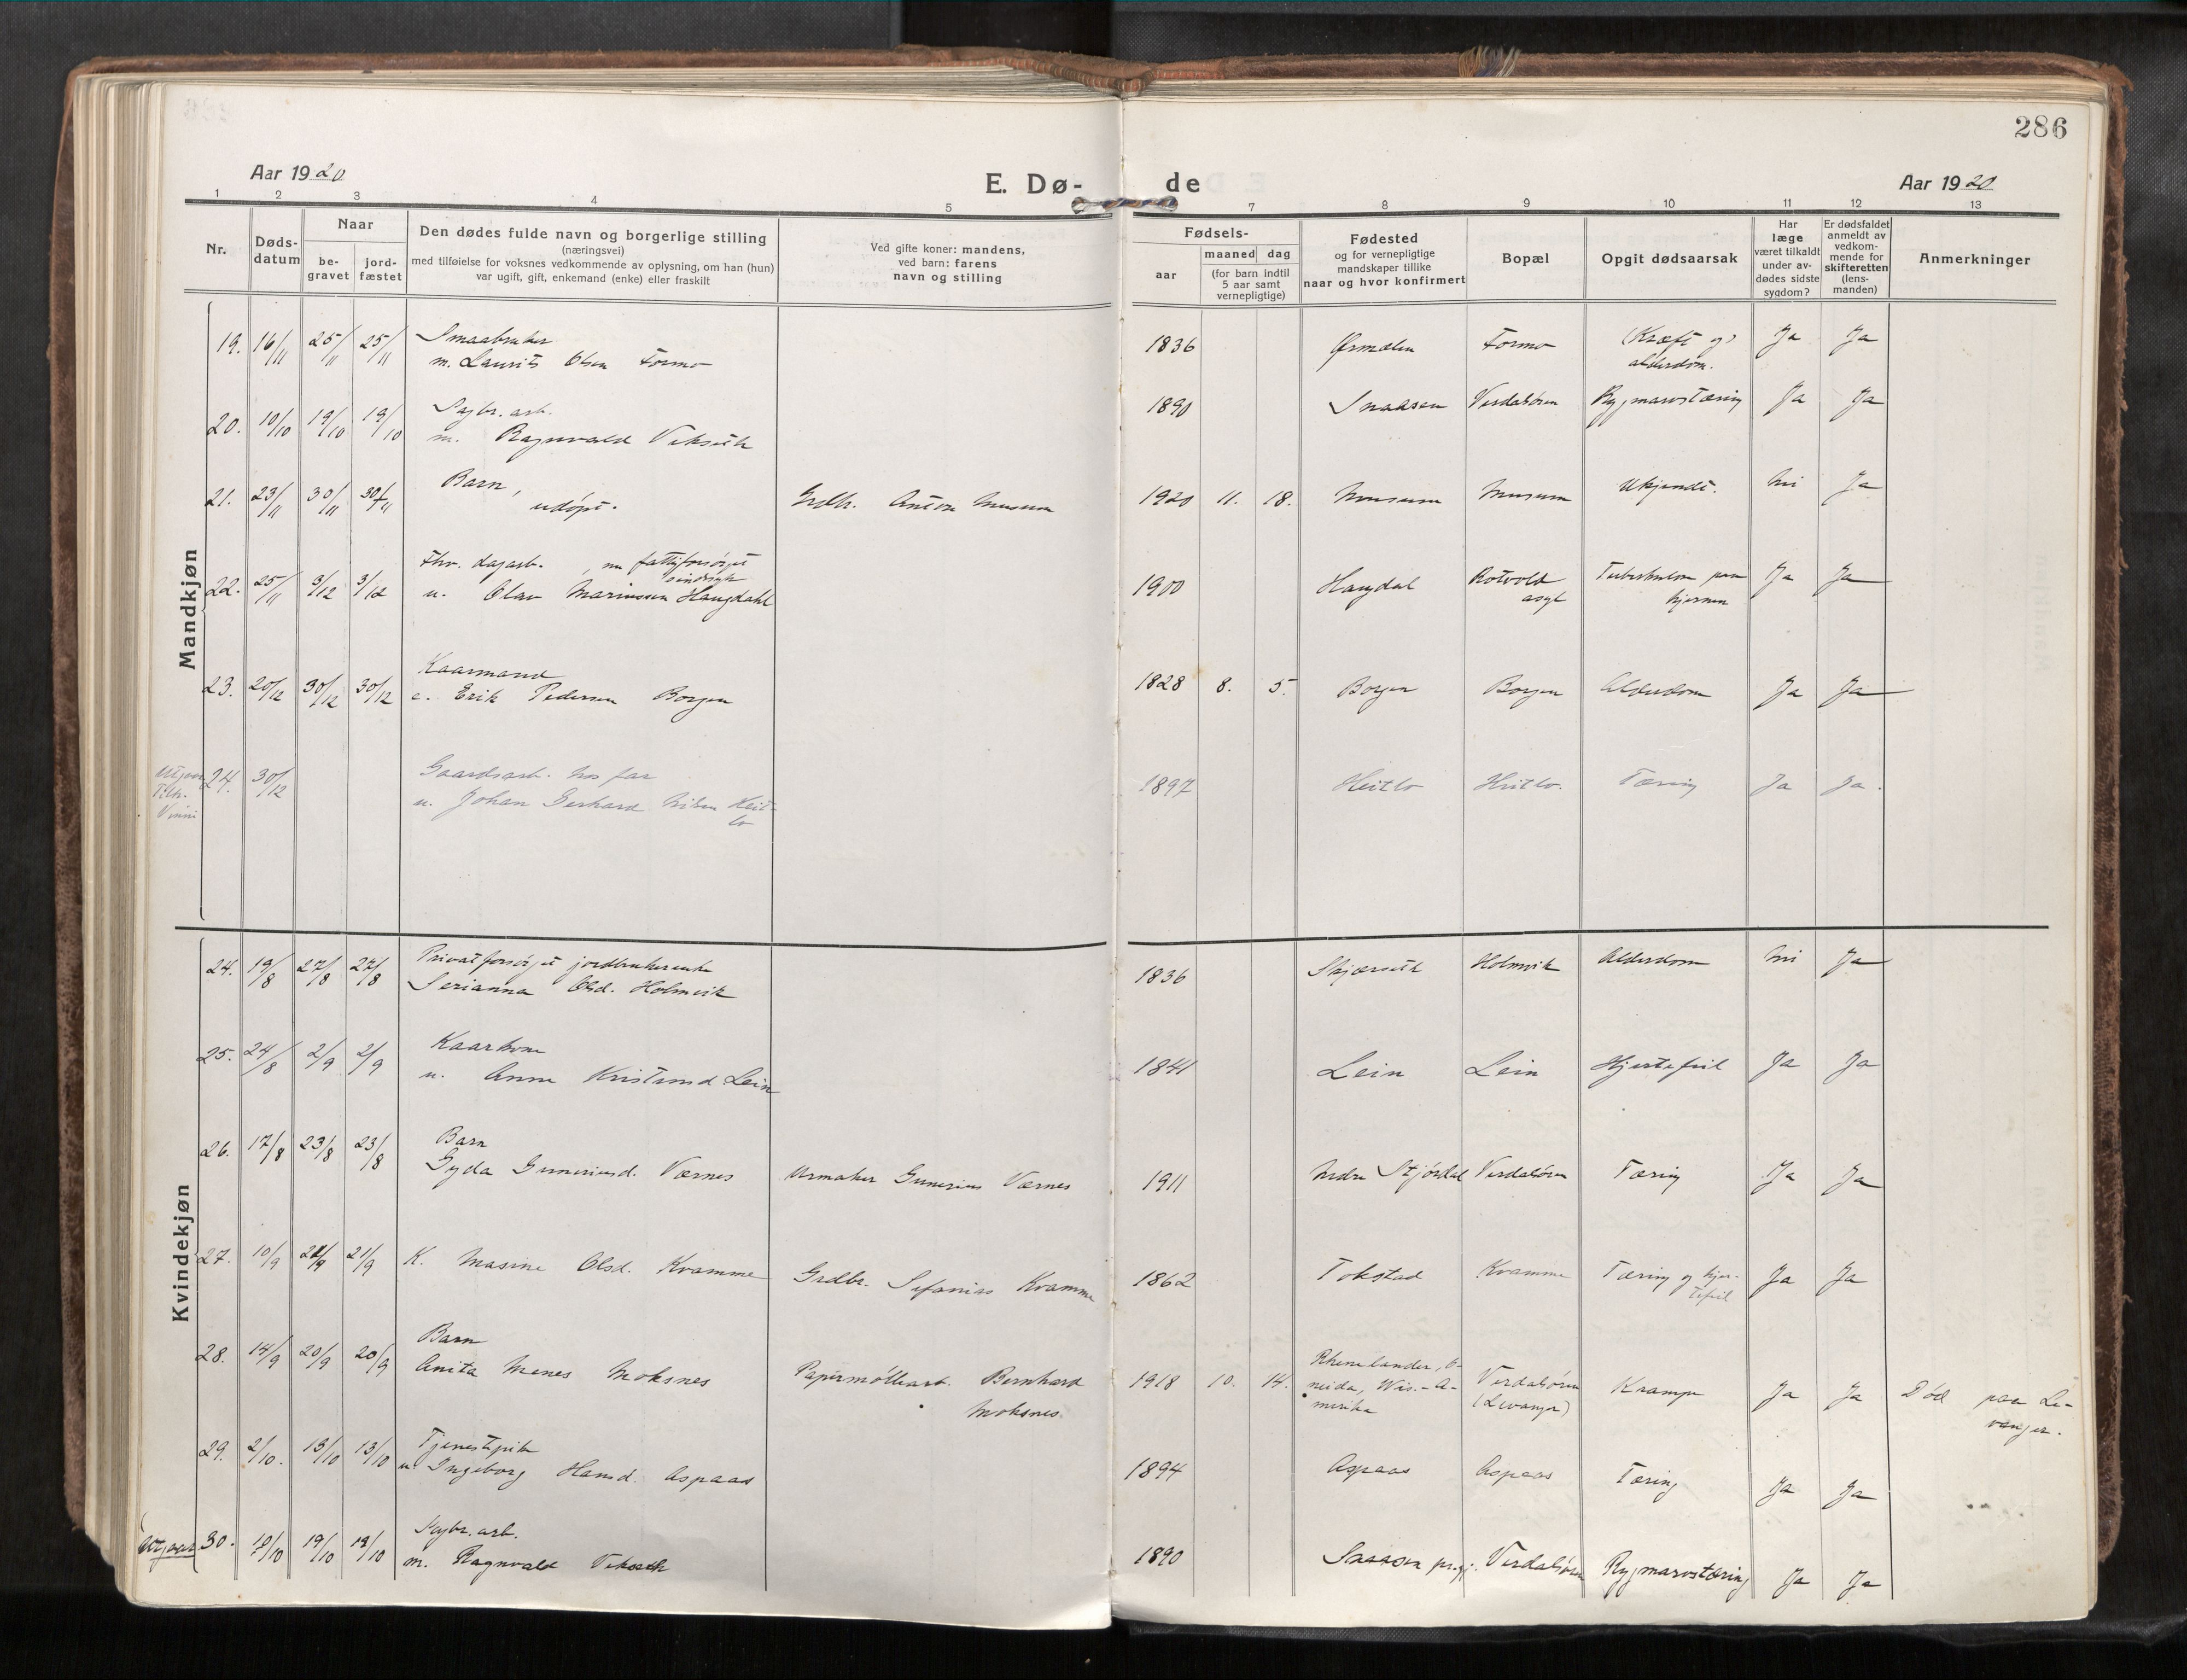 286
Aar 1920
E. Dø-
de
Aar 1920
1 2 3 4 5 7 8 9 10 11 12 13
Nr.
Døds-
datum
Naar
be-
gravet
jord-
fæstet
Den dødes fulde navn og borgerlige stilling
(næringsvei)
med tilføielse for voksnes vedkommende av oplysning, om han (hun)
var ugift, gift, enkemand (enke) eller fraskilt
Ved gifte koner: mandens,
ved barn: farens
navn og stilling
Fødsels-
aar
maaned dag
(for barn indtil
5 aar samt
vernepligtige)
Fødested
og for vernepligtige
mandskaper tillike
naar og hvor konfirmert
Bopæl
Opgit dødsaarsak
Har
læge
været tilkaldt
under av-
dødes sidste
sygdom?
Er dødsfaldet
anmeldt av
vedkom-
mende for
skifteretten
(lens-
manden)
Anmerkninger
Mandkjøn
19. 16/11 25/11 25/11 Smaabruker
m. Laurits Olsen Formo
1836 Ørmelen Formo (Kræft og)
alderdom. Ja Ja
20. 10/10 19/10 19/10 Sagbr. arb.
m. Ragnvald Vekseth
1890 Snaasen Verdalsøren Rygmarvstæring Ja Ja
21. 23/11 30/11 30/11 Barn,
udøpt. Grdbr. Anton Musum
1920 11. 18. Musum Musum Ukjendt. Nei Ja
22. 25/11 3/12 3/12 Fhv. dagarb., nu fattigforsørget
sindssyk
u. Olav Mariussen Haugdahl
1900 Haugdal Rotvold
asyl Tuberkulose paa
hjernen Ja Ja
23. 20/12 30/12 30/12 Kaarmand
e. Erik Pedersen Borgen
1828 8. 5. Borgen Borgen Alderdom Ja Ja
24. 30/12 Gaardsarb. hos far
u. Johan Gerhard Nilsen Heit-
lo
1897 Heitlo Heitlo. Tæring Ja Ja.
Utgaar
Tilh.
Vinni
Kvindekjøn
24. 19/8 27/8 27/8 Privatforsørget jordbrukerenke
Serianna Olsd. Holmvik
1836 Skjærseth Holmvik Alderdom Nei Ja
25. 24/8 2/9 2/9 Kaarkone
u. Anne Kristensd. Lein
1841 Lein Lein Hjertefeil Ja Ja
26. 17/8 23/8 23/8 Barn
Gyda Gunneriusd. Værnes Urmaker Gunerius Værnes
1911 Nedre Stjørdal Verdalsøren Tæring Ja Ja
27. 10/9 21/9 21/9 K. Masine Olsd. Kvamme Grdbr. Sefanias Kvamme
1862 Tokstad Kvamme Tæring og hjer-
tefeil Ja Ja
28. 14/9 20/9 20/9 Barn
Anita Moksnes Papirmøllearb. Bernhard
Moksnes
1918 10. 14. Rhenelander, O-
neida, Wis.-A-
merika Verdalsøren
(Levanger) Krampe Ja Ja Død paa Le-
vanger.
29. 2/10. 13/10 13/10 Tjenestepike
u. Ingeborg Hansd. Aspaas
1894 Aspaas Aspaas Tæring Ja Ja
Utgaar 30. 10/10 19/10 19/10 Sagbr. arb.
m. Ragnvald Vekseth
1890 Snaasen prgj. Verdalsøren Rygmarvstæring Ja Ja